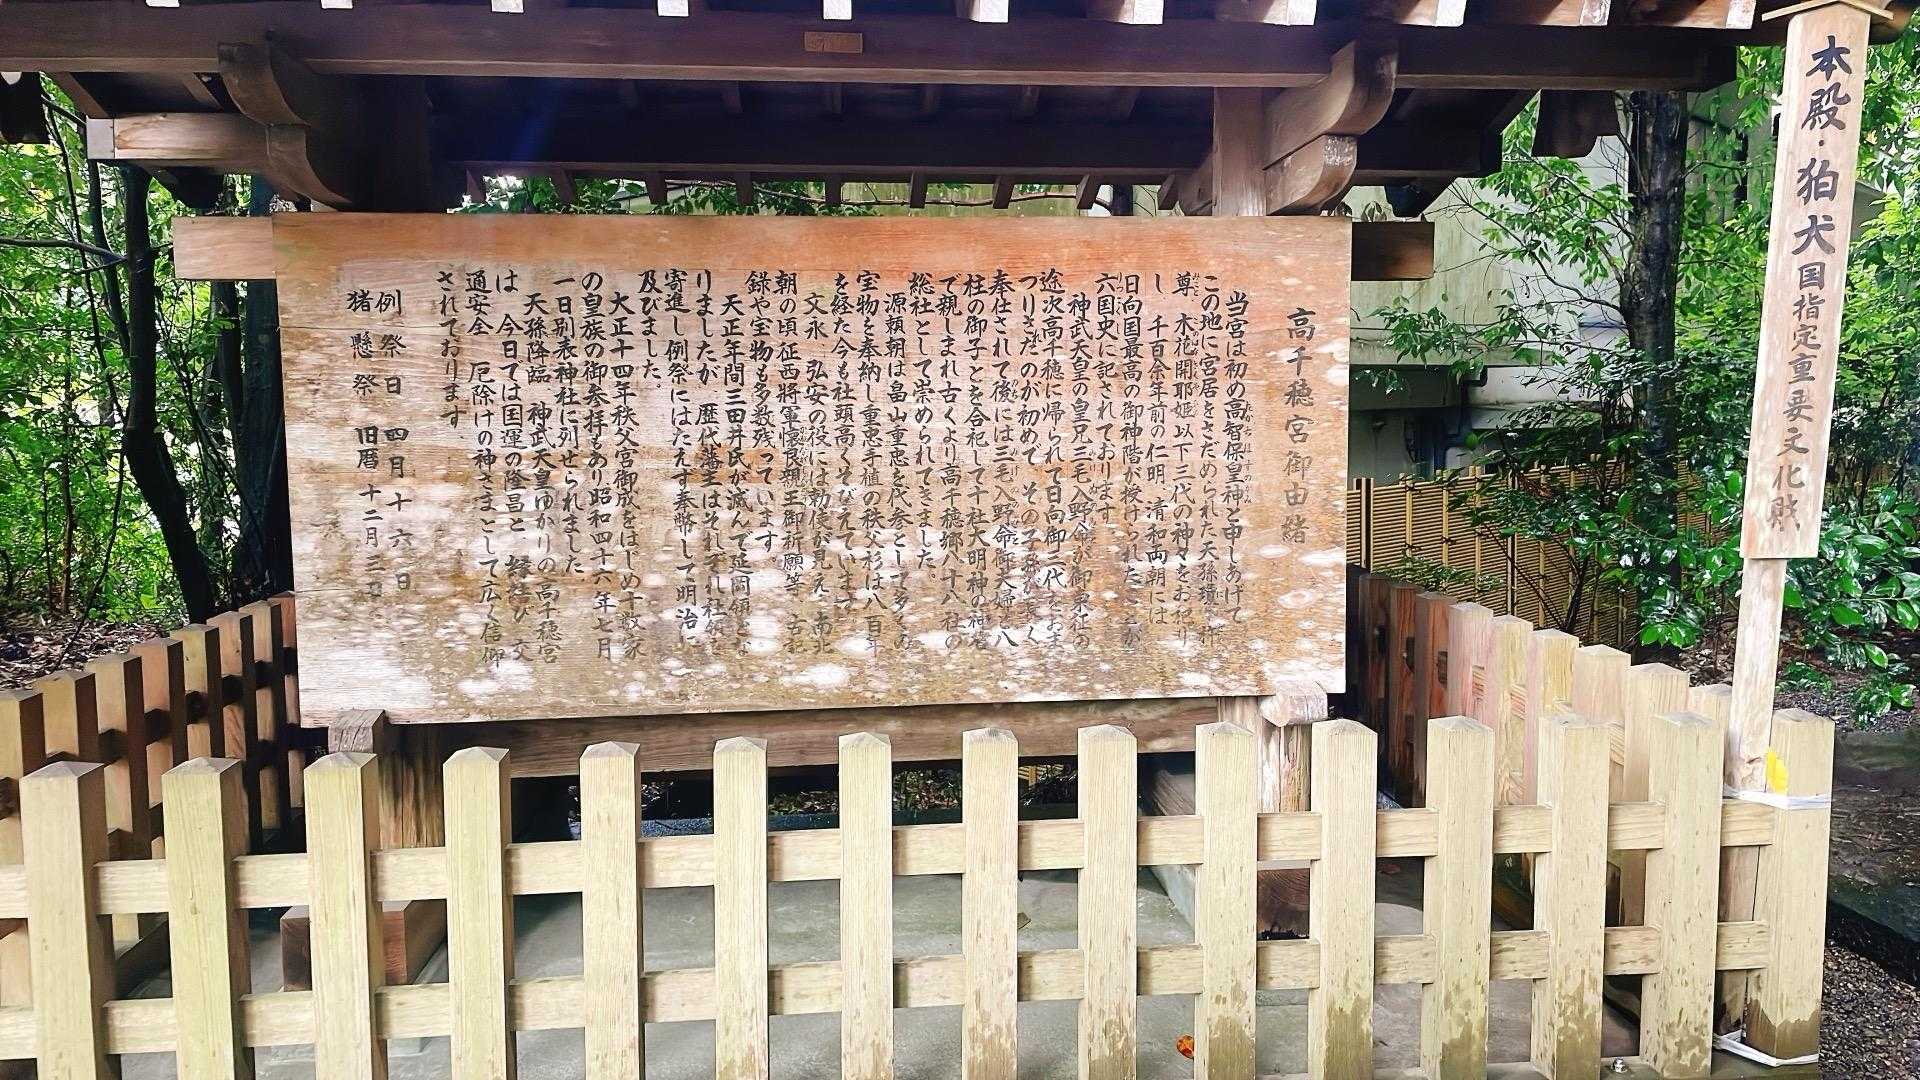 本殿・狛犬国指定重要文化財
高千穂宮御由緒
当宮は初め高智保皇神と申しあげて
この地に宮居をさだめられた天孫瓊々杵
尊 木花開耶姫以下三代の神々をお祀り
し 千百余年前の仁明 清和両朝には
日向国最高の御神階が授けられたことが
六国史に記されております
神武天皇の皇兄三毛入野命が御東征の
途次高千穂に帰られて日向御三代をおま
つりされたのが初めで その子孫が長く
奉仕されて後には三毛入野命御夫婦と八
柱の御子とを合祀して十社大明神の神名
で親しまれ古くより高千穂郷八十八社の
総社として崇められてきました。
源頼朝は畠山重忠を代参として多くの
宝物を奉納し重忠手植の秩父杉は八百年
を経た今も社頭高くそびえています
文永 弘安の役には勅使が見え 南北
朝の頃征西将軍懐良親王御祈願等 古記
録や宝物も多数残っています
天正年間三田井氏が滅んで延岡領とな
りましたが 歴代藩主はそれぞれ社領を
寄進し例祭にはたえず奉幣して明治に
及びました。
大正十四年秩父宮御成をはじめ十数家
の皇族の御参拝もあり昭和四十六年七月
一日別表神社に列せられました
天孫降臨 神武天皇ゆかりの高千穂宮
は 今日では国運の隆昌と 縁結び 交
通安全 厄除けの神さまとして広く信仰
されております
例祭日 四月十六日
猪懸祭 旧暦十二月三日